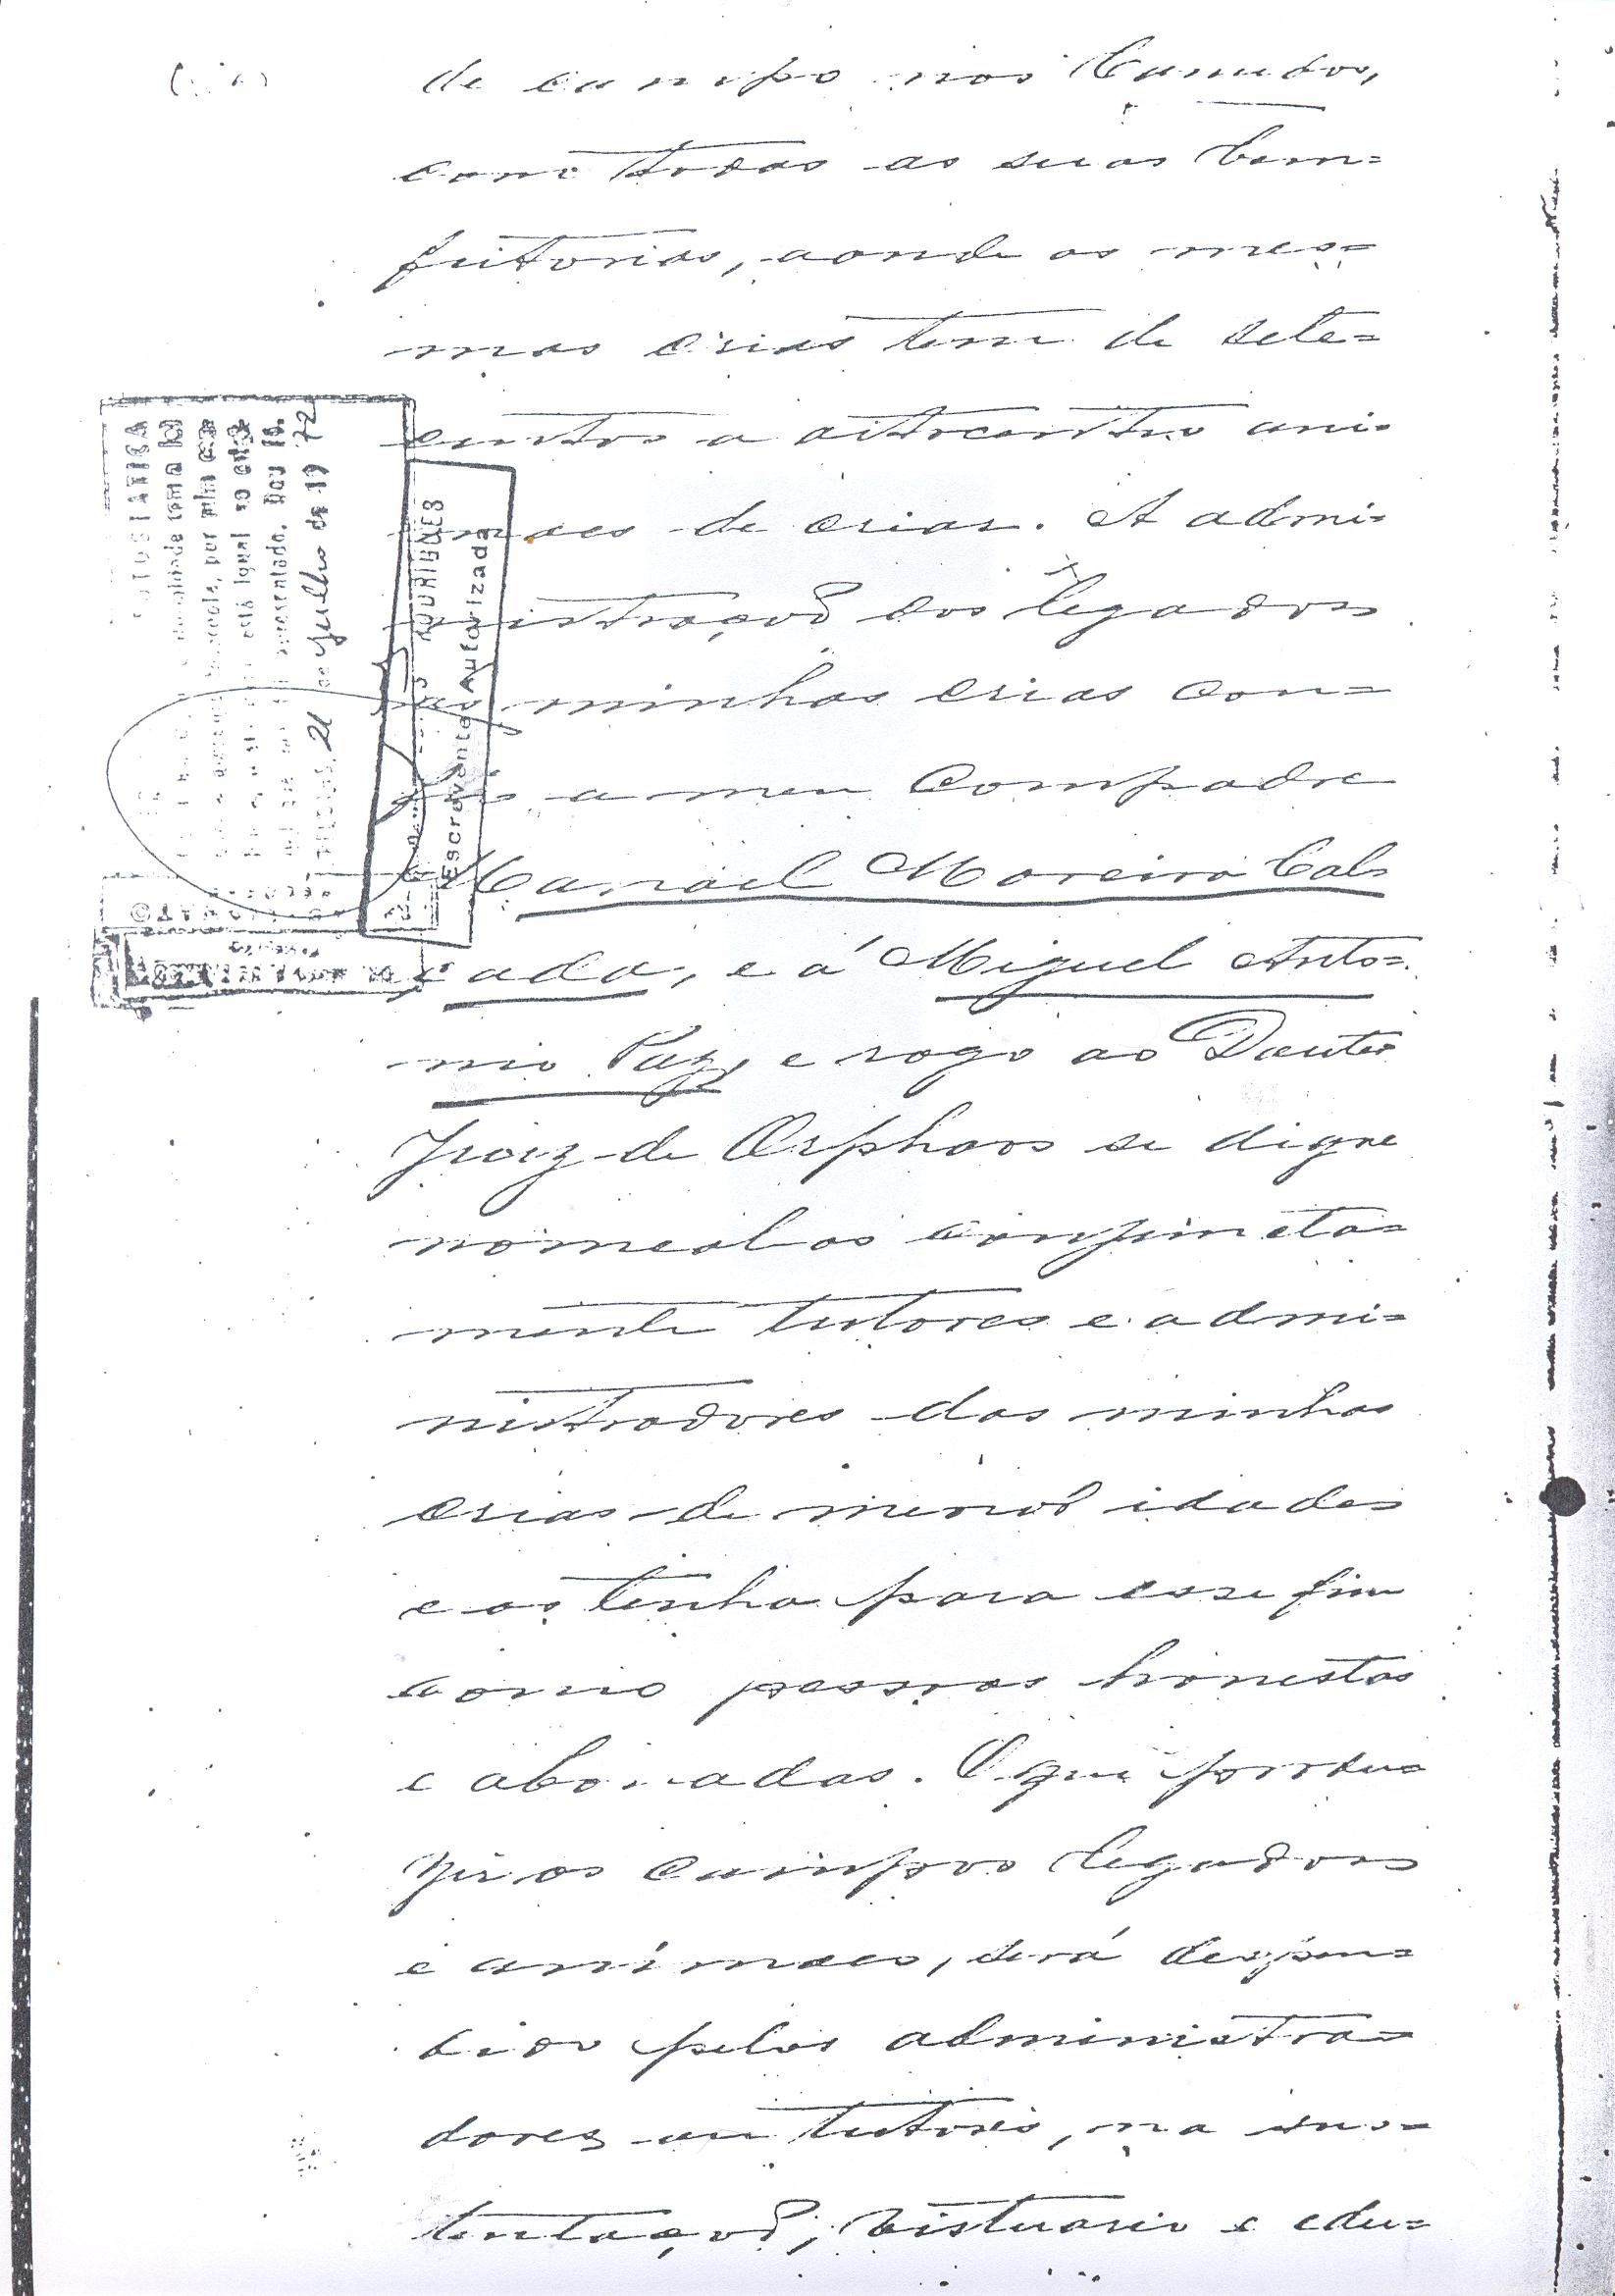 de campo nos Canudos,
com todas as suas bem=
feitorias, aonde as mes=
mas crias tem de sete=
centos a oitocentos ani=
maes de criar. A admi=
nistração dos legados
das minhas crias con=
fio a meu Compadre
Manoel Moreira Cal=
çada, e á Miguel Anto=
nio Paz, e rogo ao Doutor
Juiz de Orphaos se digne
nomeal os conjuncta=
mente tutores e admi=
nistradores das minhas
crias de menor idades
e os tenha para esse fim
como pessoas honestas
e abonadas. O que produ=
zir os campos legados
e animaes, será despen=
dido pelos administra=
dores ou tutores, na sus=
tentação, vistuario e edu=
FOTOSTATICA
está igual ao
apresentado. Dou fé.
21 de Julho de 19 72
RODRIGUES
Escrevente Autorizada